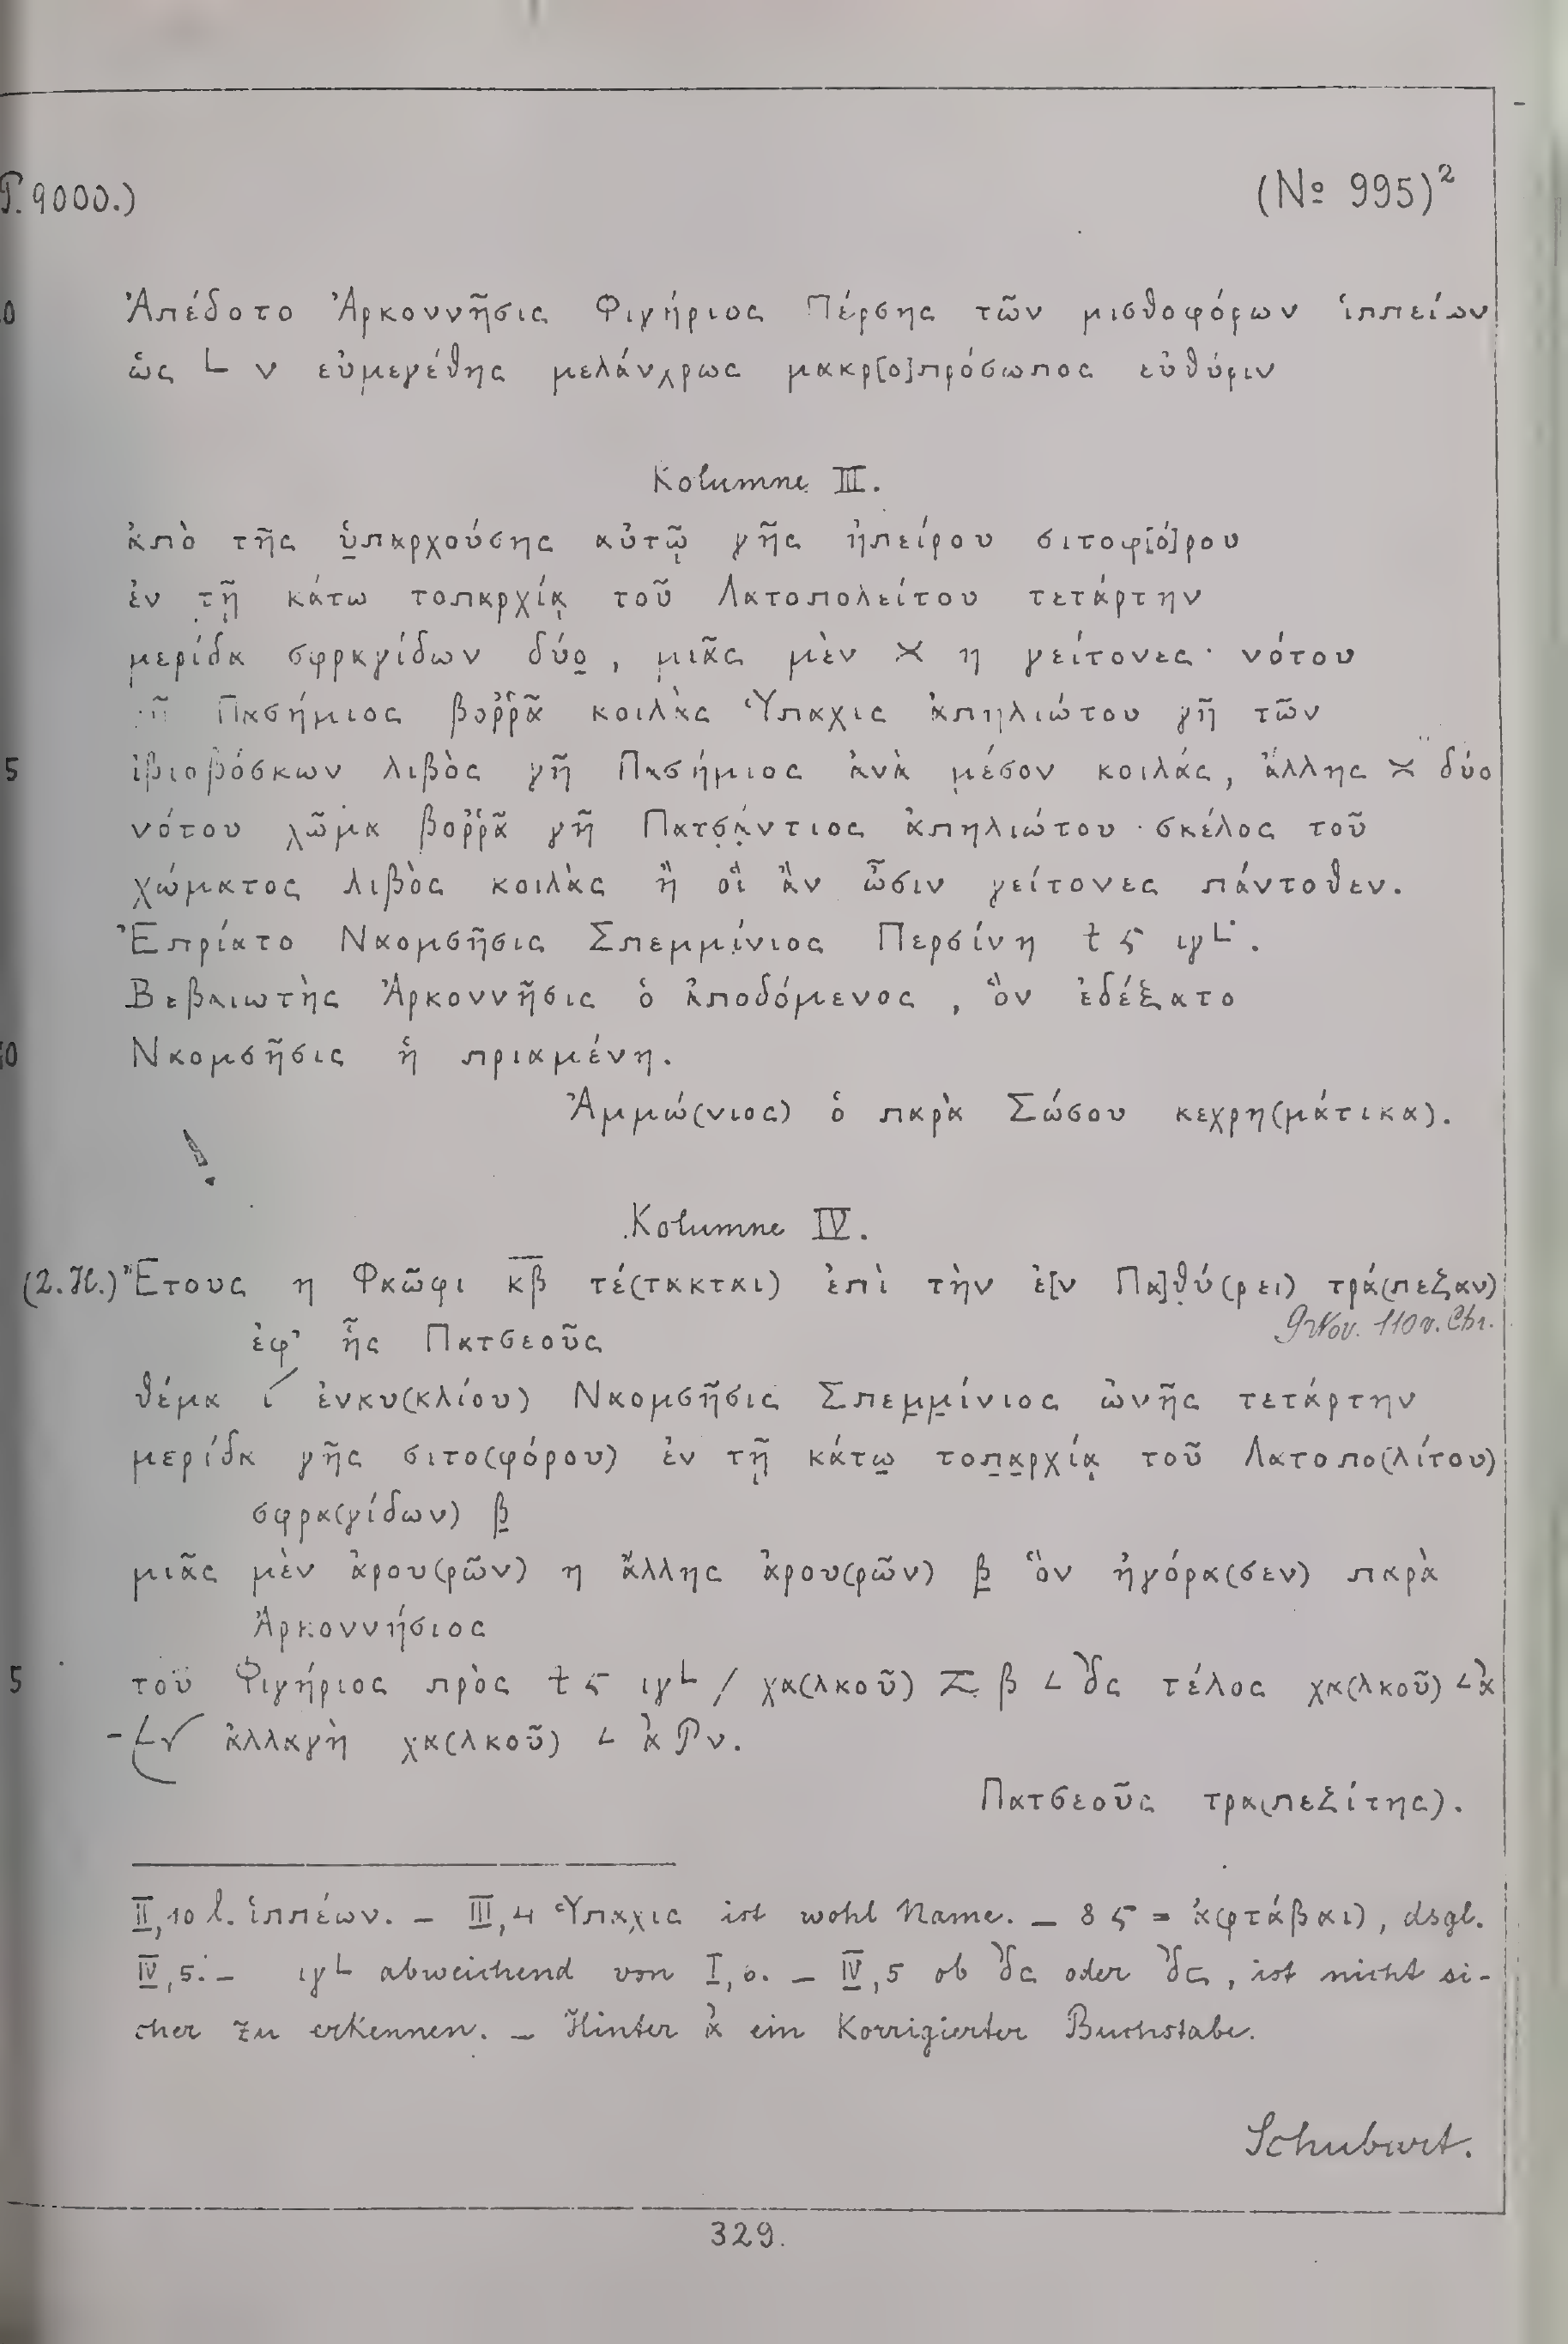 P. 9000.)
(No 995)²
10 Ἀπέδοτο Ἀρκοννῆσις Φιγήριος Πέρσης τῶν μισθοφόρων ἱππείων
ὡς L ν εὐμεγέθης μελάνχρως μακρ[ο]πρόσωπος εὐθύριν
Kolumne III.
ἀπὸ τῆς ὑ̣παρχούσης αὐτῷ γῆς ἠπείρου σιτοφ[ό]ρου
ἐν τῇ κάτω τοπαρχίᾳ τοῦ Λατοπολείτου τετάρτην
μερίδα σφραγίδων δύο̣, μιᾶς μὲν ϫ η γείτονες· νότου
γῆ Πασήμιος βοῤῥᾶ κοιλὰς Ὑπαχις ἀπηλιώτου γῆ τῶν
5 ἰβιοβόσκων λιβὸς γῆ Πασήμιος ἀνὰ μέσον κοιλάς, ἄλλης ϫ δύο
νότου χῶμα βοῤῥᾶ γῆ Πατσ̣ά̣ντιος ἀπηλιώτου · σκέλος τοῦ
χώματος λιβὸς κοιλὰς ἢ οἳ ἂν ὦσιν γείτονες πάντοθεν.
Ἐπρίατο Ναομσῆσις Σπεμμίνιος Περσίνη t ϛ ιγL.
Βεβαιωτὴς Ἀρκοννῆσις ὁ ἀποδόμενος, ὃν ἐδέξατο
10 Ναομσῆσις ἡ πριαμένη.
Ἀμμώ(νιος) ὁ παρὰ Σώσου κεχρη(μάτικα).
Kolumne IV.
(2. H.) Ἔτους η Φαῶφι κ̅β̅ τέ(τακται) ἐπὶ τὴν ἐ[ν Πα]θ̣ύ(ρει) τρά(πεζαν)
9 Nov. 110 v. Chr.
ἐφ' ἧς Πατσεοῦς
θέμα ί ἐνκυ(κλίου) Ναομσῆσις Σπεμ̣μ̣ίνιος ὠνῆς τετάρτην
μερίδα γῆς σιτο(φόρου) ἐν τῇ κάτω̣ τοπ̣α̣ρχίᾳ τοῦ Λατοπο(λίτου)
σφρα(γίδων) β̣
μιᾶς μὲν ἀρου(ρῶν) η ἄλλης ἀρου(ρῶν) β̣ ὃν ἠγόρα(σεν) παρὰ
Ἀρκοννήσιος
5 τοῦ Φιγήριος πρὸς t ϛ ιγL / χα(λκοῦ) β L δς τέλος χα(λκοῦ) L ἀ
ἀλλαγὴ χα(λκοῦ) L ἀ Ρν.
Πατσεοῦς τρα(πεζίτης).
II, 10 l. ἱππέων. – III, 4 Ὑπαχις ist wohl Name. – 8 ϛ = ἀ(ρτάβαι), dsgl.
IV, 5. – ιγL abweichend von I, 6. – IV, 5 ob δς oder δϛ, ist nicht si-
cher zu erkennen. – Hinter ἀ ein korrigierter Buchstabe.
Schubart.
329.